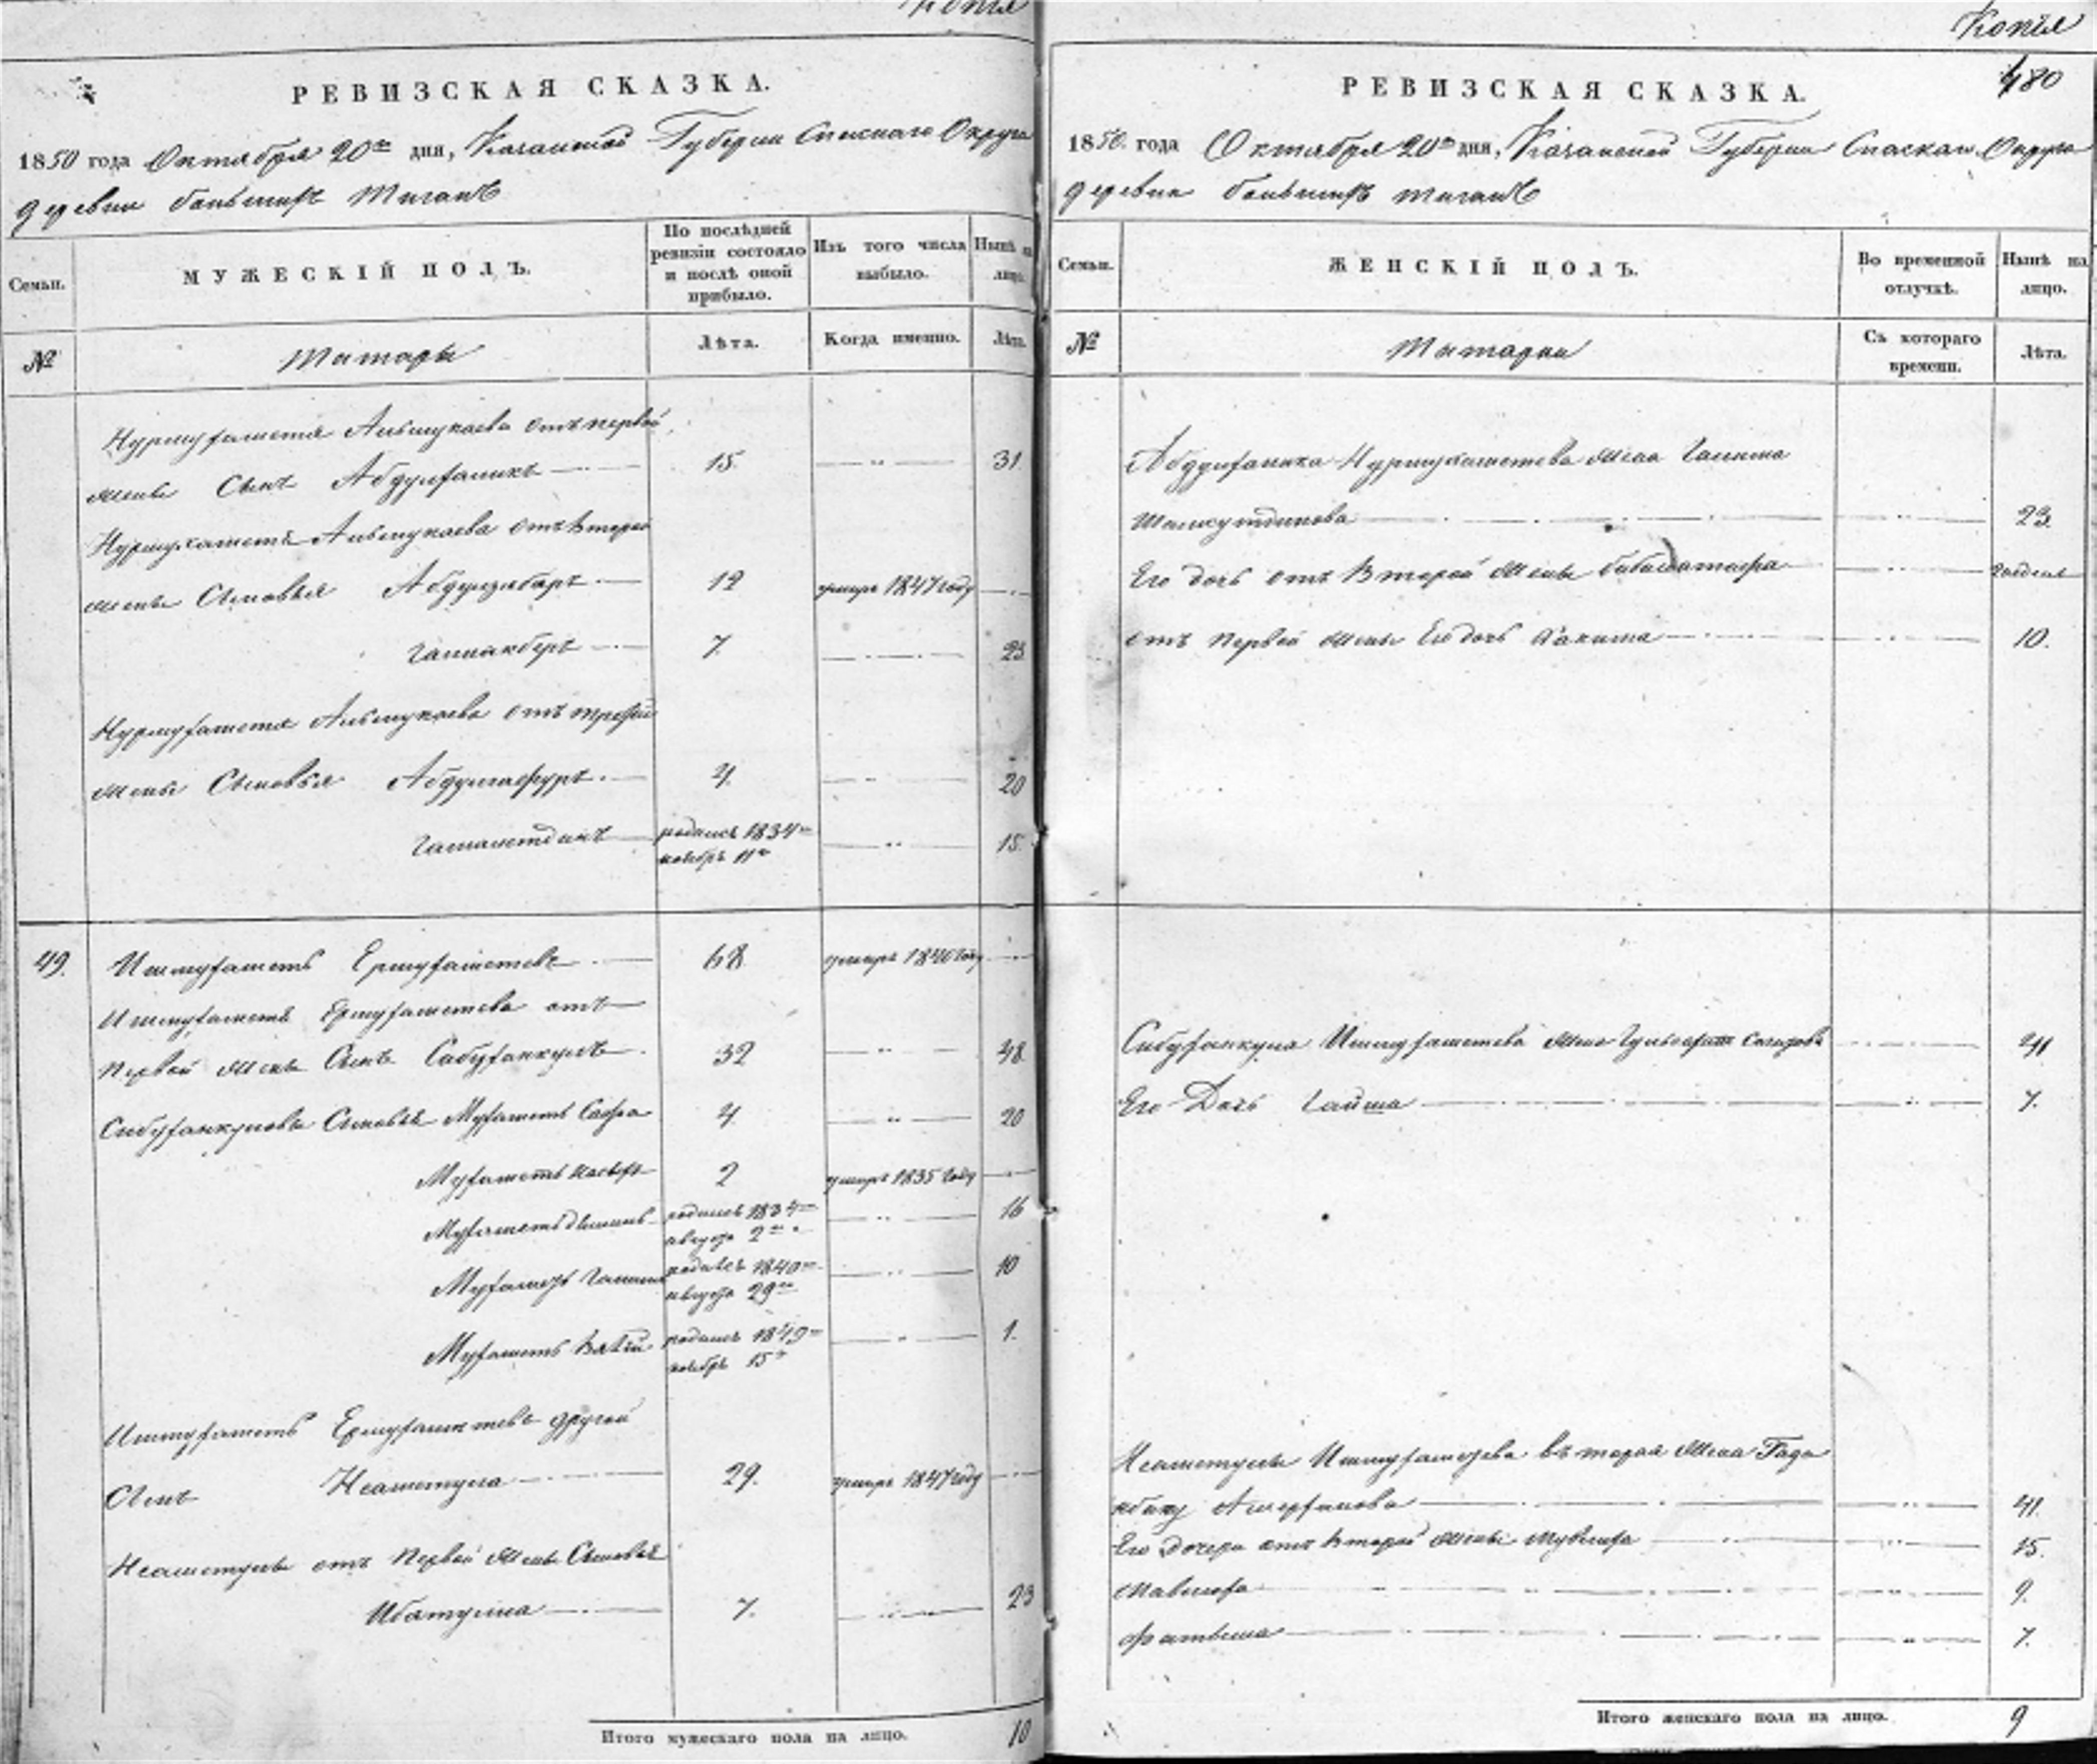 Копія
РЕВИЗСКАЯ СКАЗКА.
1850 года Октября 20го дня, Казанской Губерніи Спаскаго Округа
деревни большихъ Тиганъ
Семьи.
МУЖЕСКІЙ ПОЛЪ.
По послѣдней ревизіи состояло и послѣ оной прибыло.
Изъ того числа выбыло.
Нынѣ на лицо.
№
Татары
Лѣта.
Когда именно.
Лѣта.
Нурмухаметя Альмукаева отъ первой
жены Сынъ Абдулхаликъ 15 31
Нурмухаметя Альмукаева отъ второй
жены Сыновья Абдулзабаръ 12 умеръ 1847 году
Галиакберъ 7. 23
Нурмухаметя Альмукаева отъ третей
жены Сыновья Абдулгафуръ 4. 20
родился 1834го 15.
ноябрь 11го
49. Ишмухаметь Ермухаметевъ 68 умеръ 1840 году
Ишмухаметя Ермухаметева отъ
Первой жены Сынъ Сабуханкулъ 32 48
Сабуханкулова Сыновья Мухаметь Сафа 4. 20
Мухаметь 2 умеръ 1835 году
Мухаметь родился 1834го 16
августа 2го
Мухаметь родился 1840го 10
августа 29го
Мухаметь родился 1849го 1.
ноябрь 15го
Ишмухаметь Ермухаметевъ другой
Сынъ Неаметулла 29. умеръ 1847 году
Неаметулы отъ Первой жены Сыновья
Ибатулла 7. 23
Итого мужескаго пола на лицо. 10
Копія
480
РЕВИЗСКАЯ СКАЗКА.
1850 года Октября 20го дня, Казанской Губерніи Спаскаго Округа
деревни большихъ Тиганъ
Семьи.
ЖЕНСКІЙ ПОЛЪ.
Во временной отлучкѣ.
Нынѣ на лицо.
№
Татарки
Съ котораго времени.
Лѣта.
Абдулхалика Нурмухаметева жена Галима
Шамсутдинова 23.
Его дочь отъ Второй жены
отъ Первой жены Его дочь Хакима 10.
Сабуханкула Ишмухаметева жена 41
Его Дочь Гайша 7.
Неаметулы Ишмухаметева вторая жена
41.
Его дочери отъ второй жены 15.
9.
Фатыма 7.
Итого женскаго пола на лицо. 9